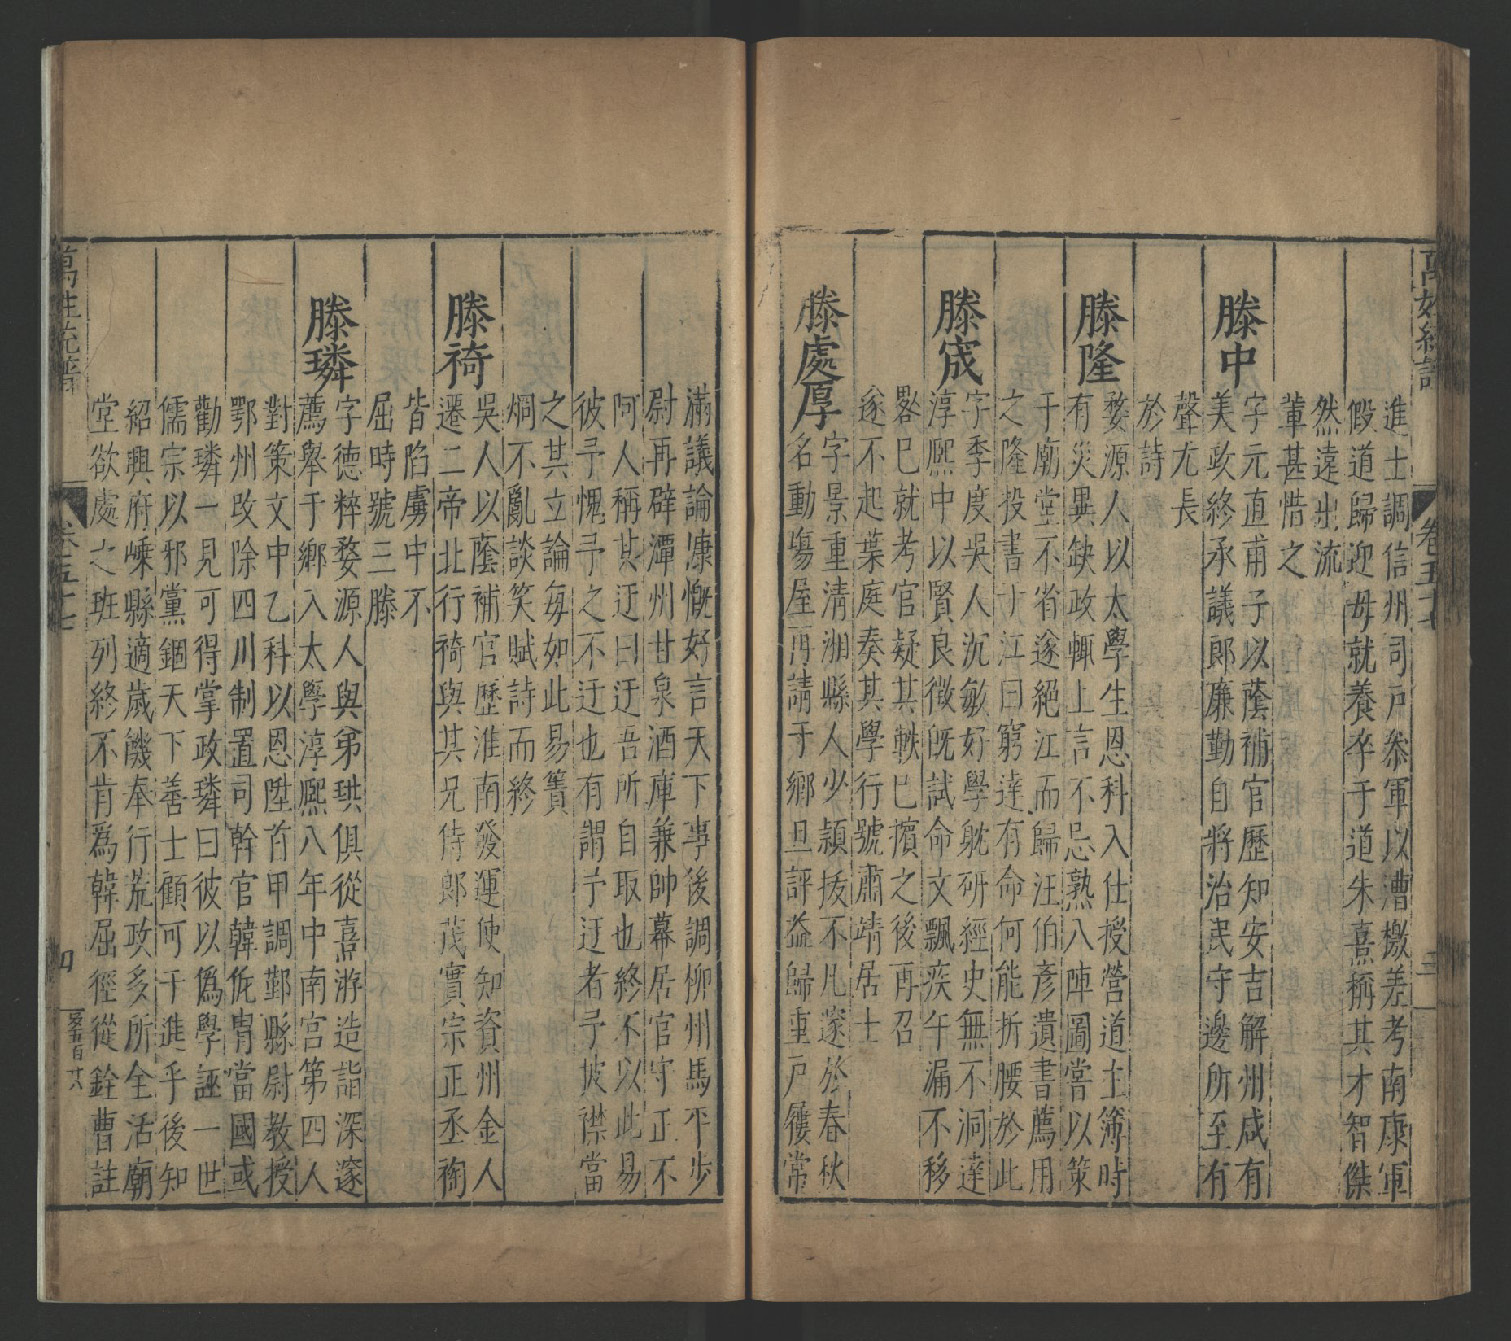 萬姓統譜
卷五十七
三
進士調信州司戶叅軍以漕檄差考南康軍
假道歸迎毋就養卒于道朱熹稱其才智傑
然遠出流
軰甚惜之
滕中
字元直甫子以蔭補官歷知安吉解州咸有
美政終承議郎廉勤自將治民守邊所至有
聲尤長
於詩
滕隆
婺源人以太學生恩科入仕授營道主簿時
有災異缺政輒上言不忌熟八陣圖嘗以策
干廟堂不省遂絕江而歸汪伯彥遺書薦用
之隆投書于江曰窮達有命何能折腰於此
滕宬
字季度吳人沉敏好學躭研經史無不洞達
淳熙中以賢良徵旣試命文飄疾午漏不移
畧巳就考官疑其軼巳擯之後再召
遂不起葉庭奏其學行號肅靖居士
滕處厚
字景重清湘縣人少頴抜不凡邃於春秋
名動塲屋再請于鄉旦評益歸重戶屨常
滿議論慷慨好言天下事後調柳州馬平步
尉再辟潭州甘泉酒庫兼帥幕居官守正不
阿人稱其迂曰迂吾所自取也終不以此易
彼予愧予之不迂也有謂予迂者予披襟當
之其立論毎如此易簀
烱不亂談笑賦詩而終
滕裿
吳人以蔭補官歷淮南發運使知資州金人
遷二帝北行裿與其兄侍郎茂實宗正丞裪
皆陷虜中不
屈時號三滕
滕璘
字德粹婺源人與弟珙俱從熹游造詣深邃
薦舉于鄉入太學淳熙八年中南宮第四人
對策文中乙科以恩陞首甲調鄞縣尉教授
鄂州改除四川制置司幹官韓侂冑當國或
勸璘一見可得掌政璘曰彼以僞學誣一世
儒宗以邪黨錮天下善士顧可干進乎後知
紹興府嵊縣適歲饑奉行荒政多所全活廟
堂欲處之班列終不肯爲韓屈徑從銓曹註
萬姓統譜
卷五十七
四